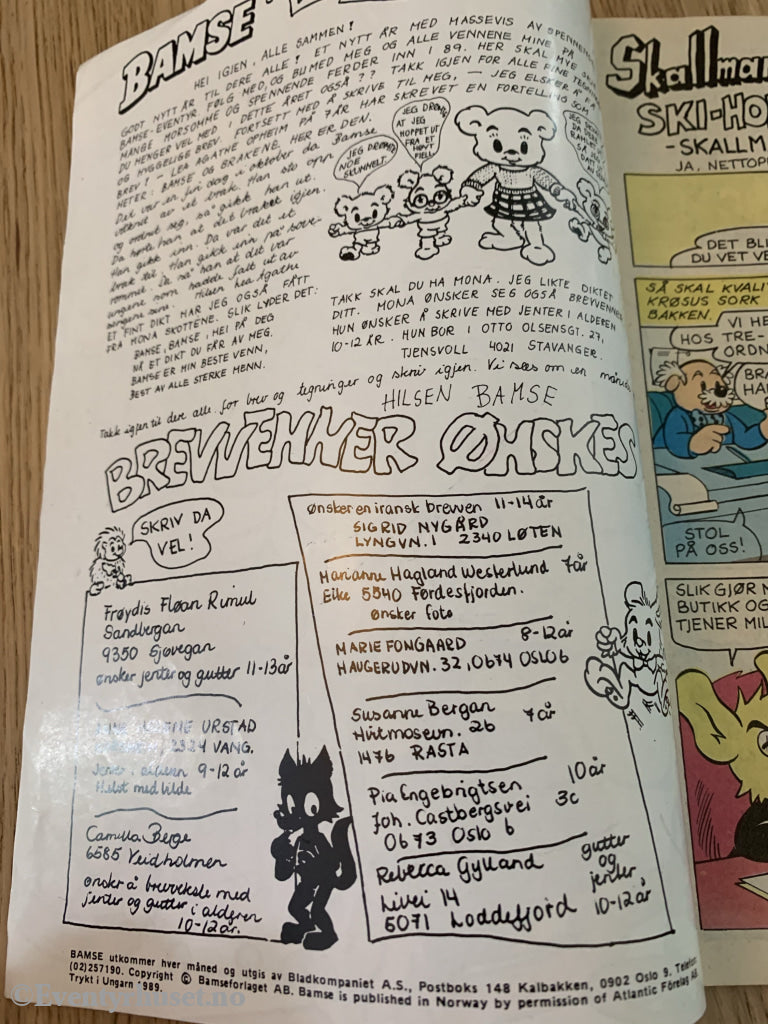 BAMSE
HEI IGJEN, ALLE SAMMEN!
GODT NYTT ÅR TIL DERE ALLE! ET NYTT ÅR MED MASSEVIS AV SPENNENDE
BAMSE-EVENTYR. FØLG MED, OG BLI MED MEG OG ALLE VENNENE MINE PÅ
MANGE MORSOMME OG SPENNENDE FERDER INN I 89. HER SKAL MYE
DU HENGER VEL MED I DETTE ÅRET OGSÅ?? TAKK IGJEN FOR ALLE FINE
OG HYGGELIGE BREV! FORTSETT MED Å SKRIVE TIL MEG, - JEG ELSKER Å FÅ
BREV! - LEA AGATHE OPHEIM PÅ 7 ÅR HAR SKREVET EN FORTELLING SOM
HETER: BAMSE OG BRAKENE. HER ER DEN.
Det var en fin dag i oktober da Bamse
våknet av et brak. Han sto opp
og ordnet seg, så gikk han ut.
Da hørte han at det braket igjen.
Han gikk inn. Da var det et
brak til. Han gikk inn på sove-
rommet. Da så han at det var
ungene som hadde falt ut av
sengene sine. Hilsen Lea Agathe
ET FINT DIKT HAR JEG OGSÅ FÅTT
FRA MONA SKOTTENE. SLIK LYDER DET:
BAMSE, BAMSE, HEI PÅ DEG
NÅ ET DIKT DU FÅR AV MEG.
BAMSE ER MIN BESTE VENN,
BEST AV ALLE STERKE MENN.
JEG DRØMTE
NOE
SKUMMELT.
JEG DRØMTE
AT JEG
HOPPET UT
FRA ET
HØYT
FJELL
TAKK SKAL DU HA MONA. JEG LIKTE DIKTET
DITT. MONA ØNSKER SEG OGSÅ BREVVENNER
HUN ØNSKER Å SKRIVE MED JENTER I ALDEREN
10-12 ÅR. HUN BOR I OTTO OLSENSGT. 27,
TJENSVOLL 4021 STAVANGER.
Takk igjen til dere alle for brev og tegninger og skriv igjen. Vi sees om en måned
HILSEN BAMSE
BREVVENNER ØNSKES
SKRIV DA
VEL!
Frøydis Fløan Rimul
Sandbergan
9350 Sjøvegan
ønsker jenter og gutter 11-13 år
URSTAD
2324 VANG.
Jenter i alderen 9-12 år
Helst med bilde
Camilla Berge
6585 Veidholmen
ønsker å brevveksle med
jenter og gutter i alderen
10-12 år.
Ønsker en iransk brevven 11-14 år
SIGRID NYGÅRD
LYNGVN. 1 2340 LØTEN
Marianne Hagland Westerlund 7 år
Eike 5540 Førdesfjorden.
Ønsker foto
MARIE FONGAARD 8-12 år
HAUGERUDVN. 32, 0674 OSLO 6
Susanne Bergan 7 år
Hvitmosevn. 26
1476 RASTA
Pia Engebrigtsen 10 år
Joh. Castbergsvei 3c
0673 Oslo 6
Rebecca Gylland gutter
og
jenter
Livei 14
5071 Loddefjord 10-12 år
BAMSE utkommer hver måned og utgis av Bladkompaniet A.S., Postboks 148 Kalbakken, 0902 Oslo 9. Telefon
(02)257190. Copyright © Bamseforlaget AB. Bamse is published in Norway by permission of Atlantic Förlag AB
Trykt i Ungarn 1989.
©Eventyrhuset.no
Skallman
SKI-HO
-SKALLM
JA, NETTOP
DET BLI
DU VET VE
SÅ SKAL KVALI
KRØSUS SORK
BAKKEN.
VI HE
HOS TRE-
ORDN
BRA
HA
STOL
PÅ OSS!
SLIK GJØR
BUTIKK OG
TJENER MIL